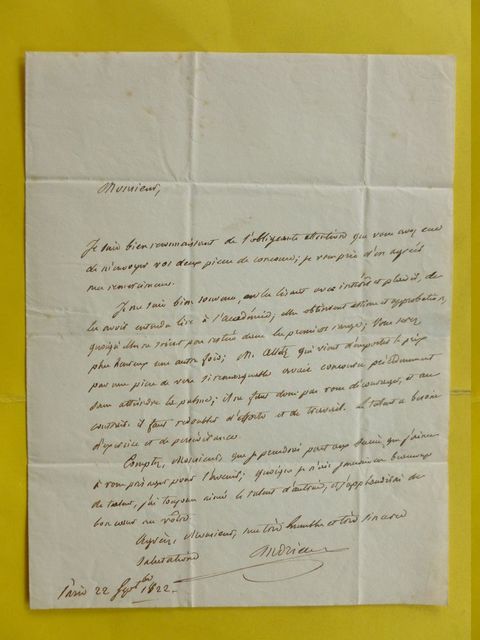 Monsieur,
Je suis bien reconnaissant de l'obligeante attention que vous avez eue
de m'envoyer vos deux pièces de concours; je vous prie d'en agréer
mes remerciemens.
Je me suis bien souvenu, en les lisant avec intérêt et plaisir, de
les avoir entendu lire à l'académie; elles obtinrent estime et approbation,
quoiqu'elles ne soient pas restées dans les premiers rangs; Vous serez
plus heureux une autre fois; M. qui vient d'emporter le prix
par une pièce de vers si remarquable avait concouru précédemment
sans atteindre la palme; il ne faut donc pas vous décourager, et au
contraire il faut redoubler d'efforts et de travail. Le talent a besoin
d'exercice et de persévérance.
Comptez, Monsieur, que je prendrai part aux succès que j'aime
à vous présager pour l'avenir; quoique je n'aie jamais eu beaucoup
de talent, j'ai toujours aimé le talent d'autrui, et j'applaudirai de
bon coeur au vôtre.
Agréez, Monsieur, mes très humbles et très sincères
salutations
Paris 22 1822.